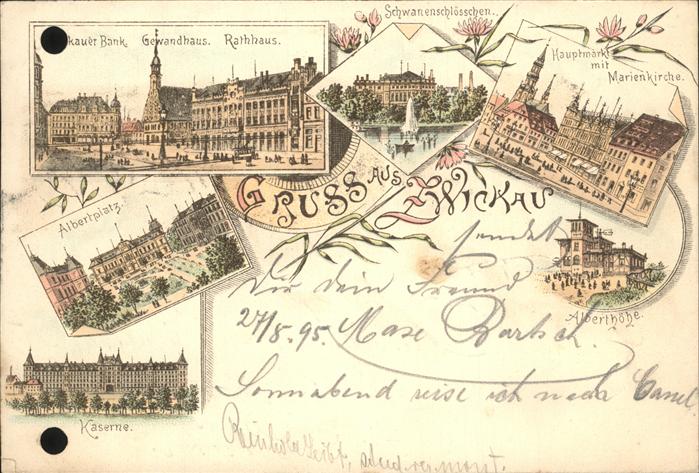 Schwanenschlösschen.
kauer Bank. Gewandhaus. Rathhaus.
Hauptmarkt
mit
Marienkirche.
Albertplatz.
GRUSS AUS ZWICKAU
sendet
Dir dein Freund
Alberthöhe.
27/8. 95. Max Bartsch.
Sonnabend reise ich nach
Kaserne.